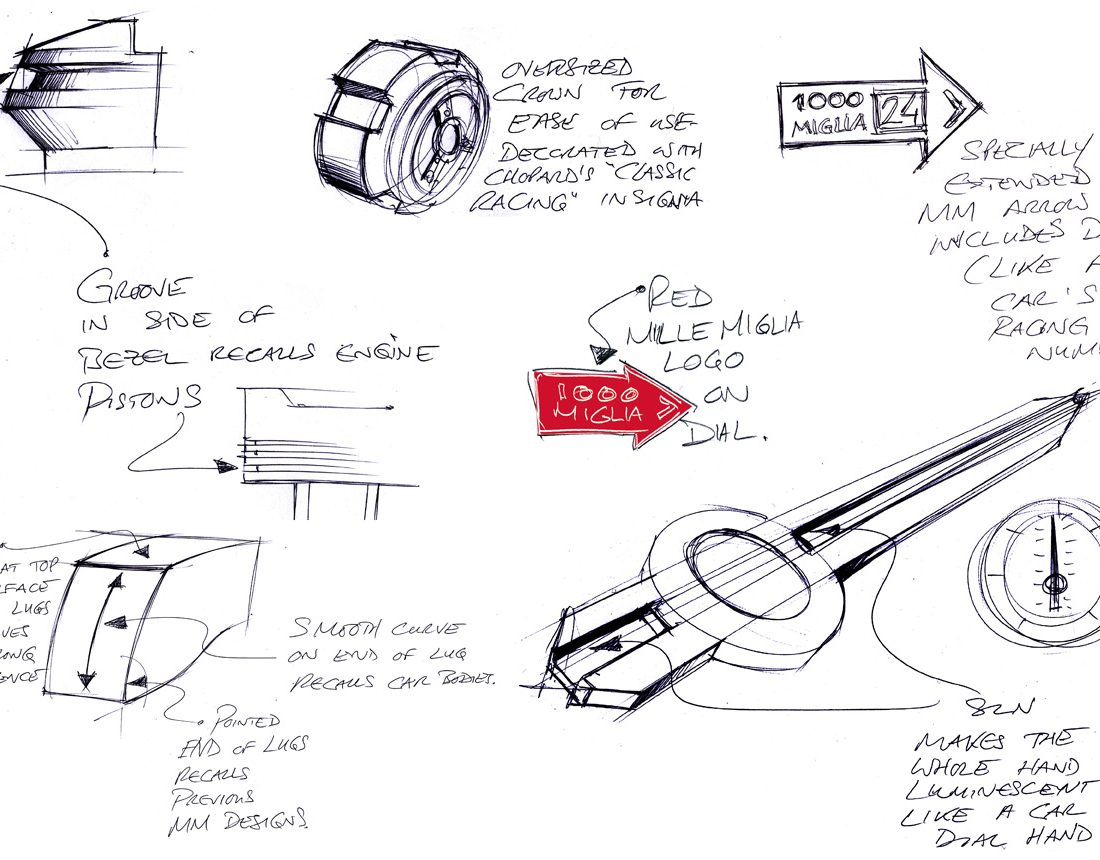 OVERSIZED
CROWN FOR
EASE OF USE.
DECORATED WITH
CHOPARD'S "CLASSIC
RACING" INSIGNIA
1000
MIGLIA 24
SPECIALLY
EXTENDED
MM ARROW
INCLUDES D
(LIKE A
CAR'S
RACING
NUM
GROOVE
IN SIDE OF
BEZEL RECALLS ENGINE
PISTONS
RED
MILLE MIGLIA
LOGO
ON
DIAL.
1000
MIGLIA
AT TOP
RFACE
LUGS
VES
ONG
ENCE
SMOOTH CURVE
ON END OF LUG
RECALLS CAR BODIES.
POINTED
END OF LUGS
RECALLS
PREVIOUS
MM DESIGNS.
SLN
MAKES THE
WHOLE HAND
LUMINESCENT
LIKE A CAR
DIAL HAND